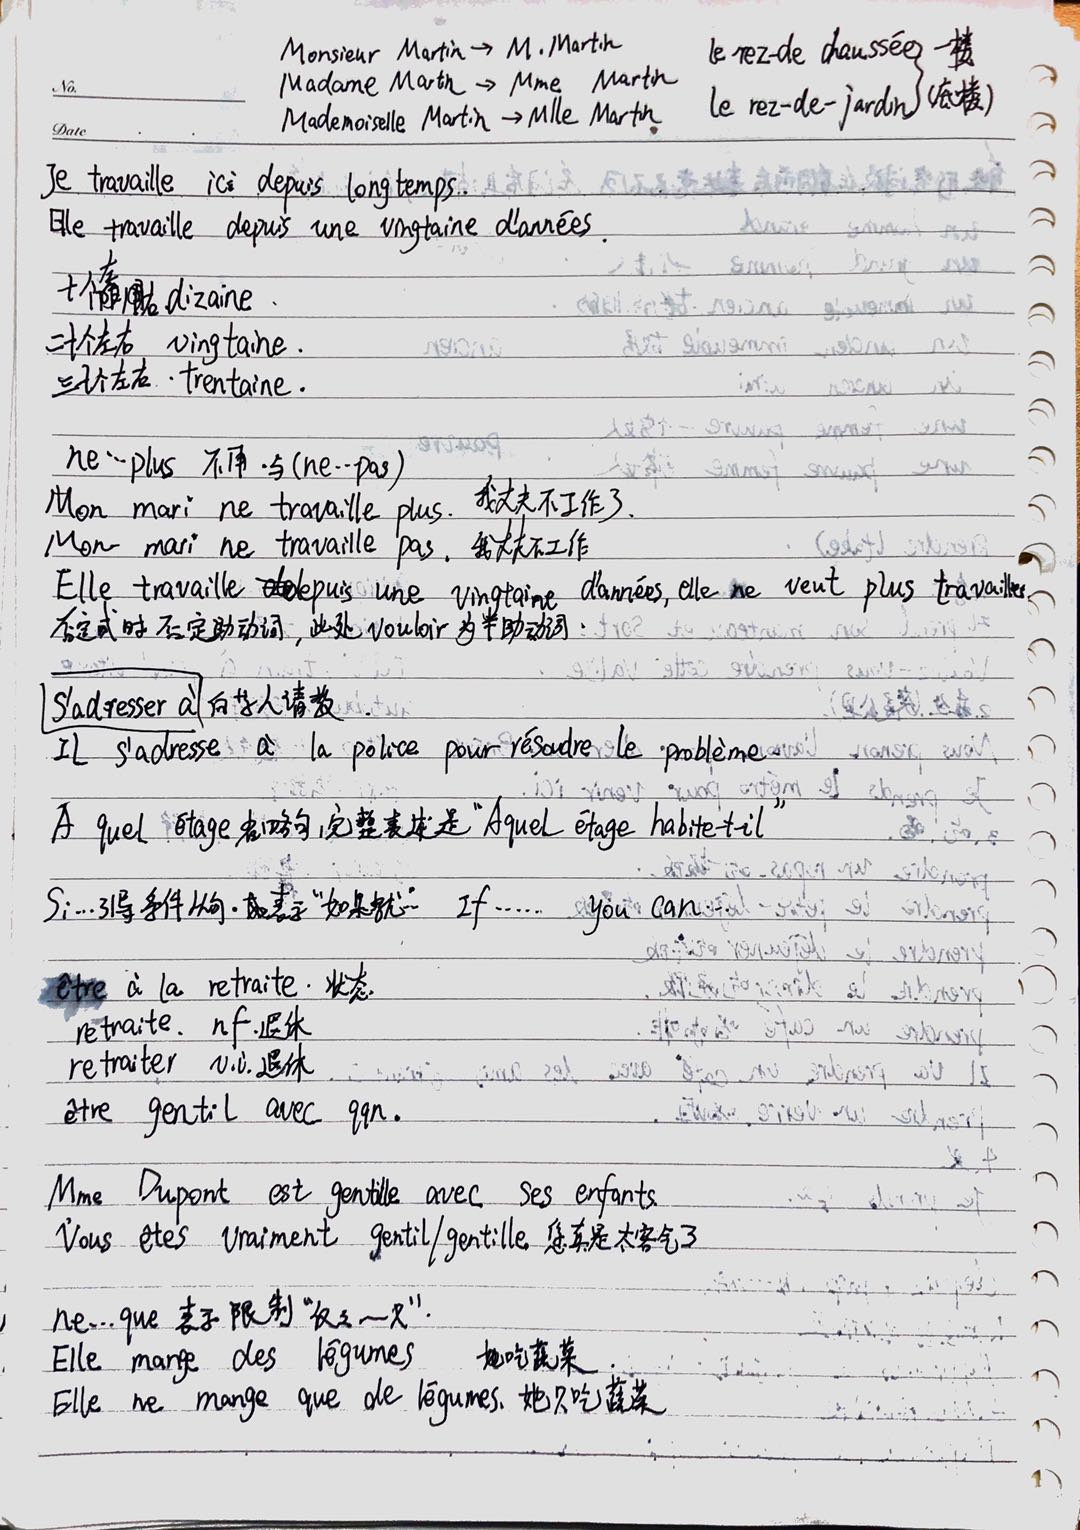 Monsieur Martin → M. Martin
Madame Martin → Mme Martin
Mademoiselle Martin → Mlle Martin.
le rez-de chaussée } 一楼
le rez-de-jardin } (底楼)
No.
Date
Je travaille ici depuis longtemps.
Elle travaille depuis une vingtaine d'années.
十个左右 dizaine.
二十个左右 vingtaine.
三十个左右. trentaine.
ne…plus 不再.与(ne…pas)
Mon mari ne travaille plus. 我丈夫不工作了.
Mon mari ne travaille pas. 我丈夫不工作
Elle travaille depuis une vingtaine d'années, elle ne veut plus travailler
否定式时否定助动词, 此处 vouloir 为半助动词.
S'adresser à 向某人请教.
Il s'adresse à la police pour résoudre le problème.
A quel étage 省略句, 完整表述是 "A quel étage habite-t-il"
Si…引导条件从句. 表示 "如果就…" If …… you can.
être à la retraite. 状态.
retraite. nf. 退休
retraiter v.i. 退休
être gentil avec qqn.
Mme Dupont est gentille avec ses enfants.
Vous êtes vraiment gentil/gentille. 您真是太客气了
ne…que 表示限制 "仅仅一只".
Elle mange des légumes 她吃蔬菜.
Elle ne mange que de légumes. 她只吃蔬菜